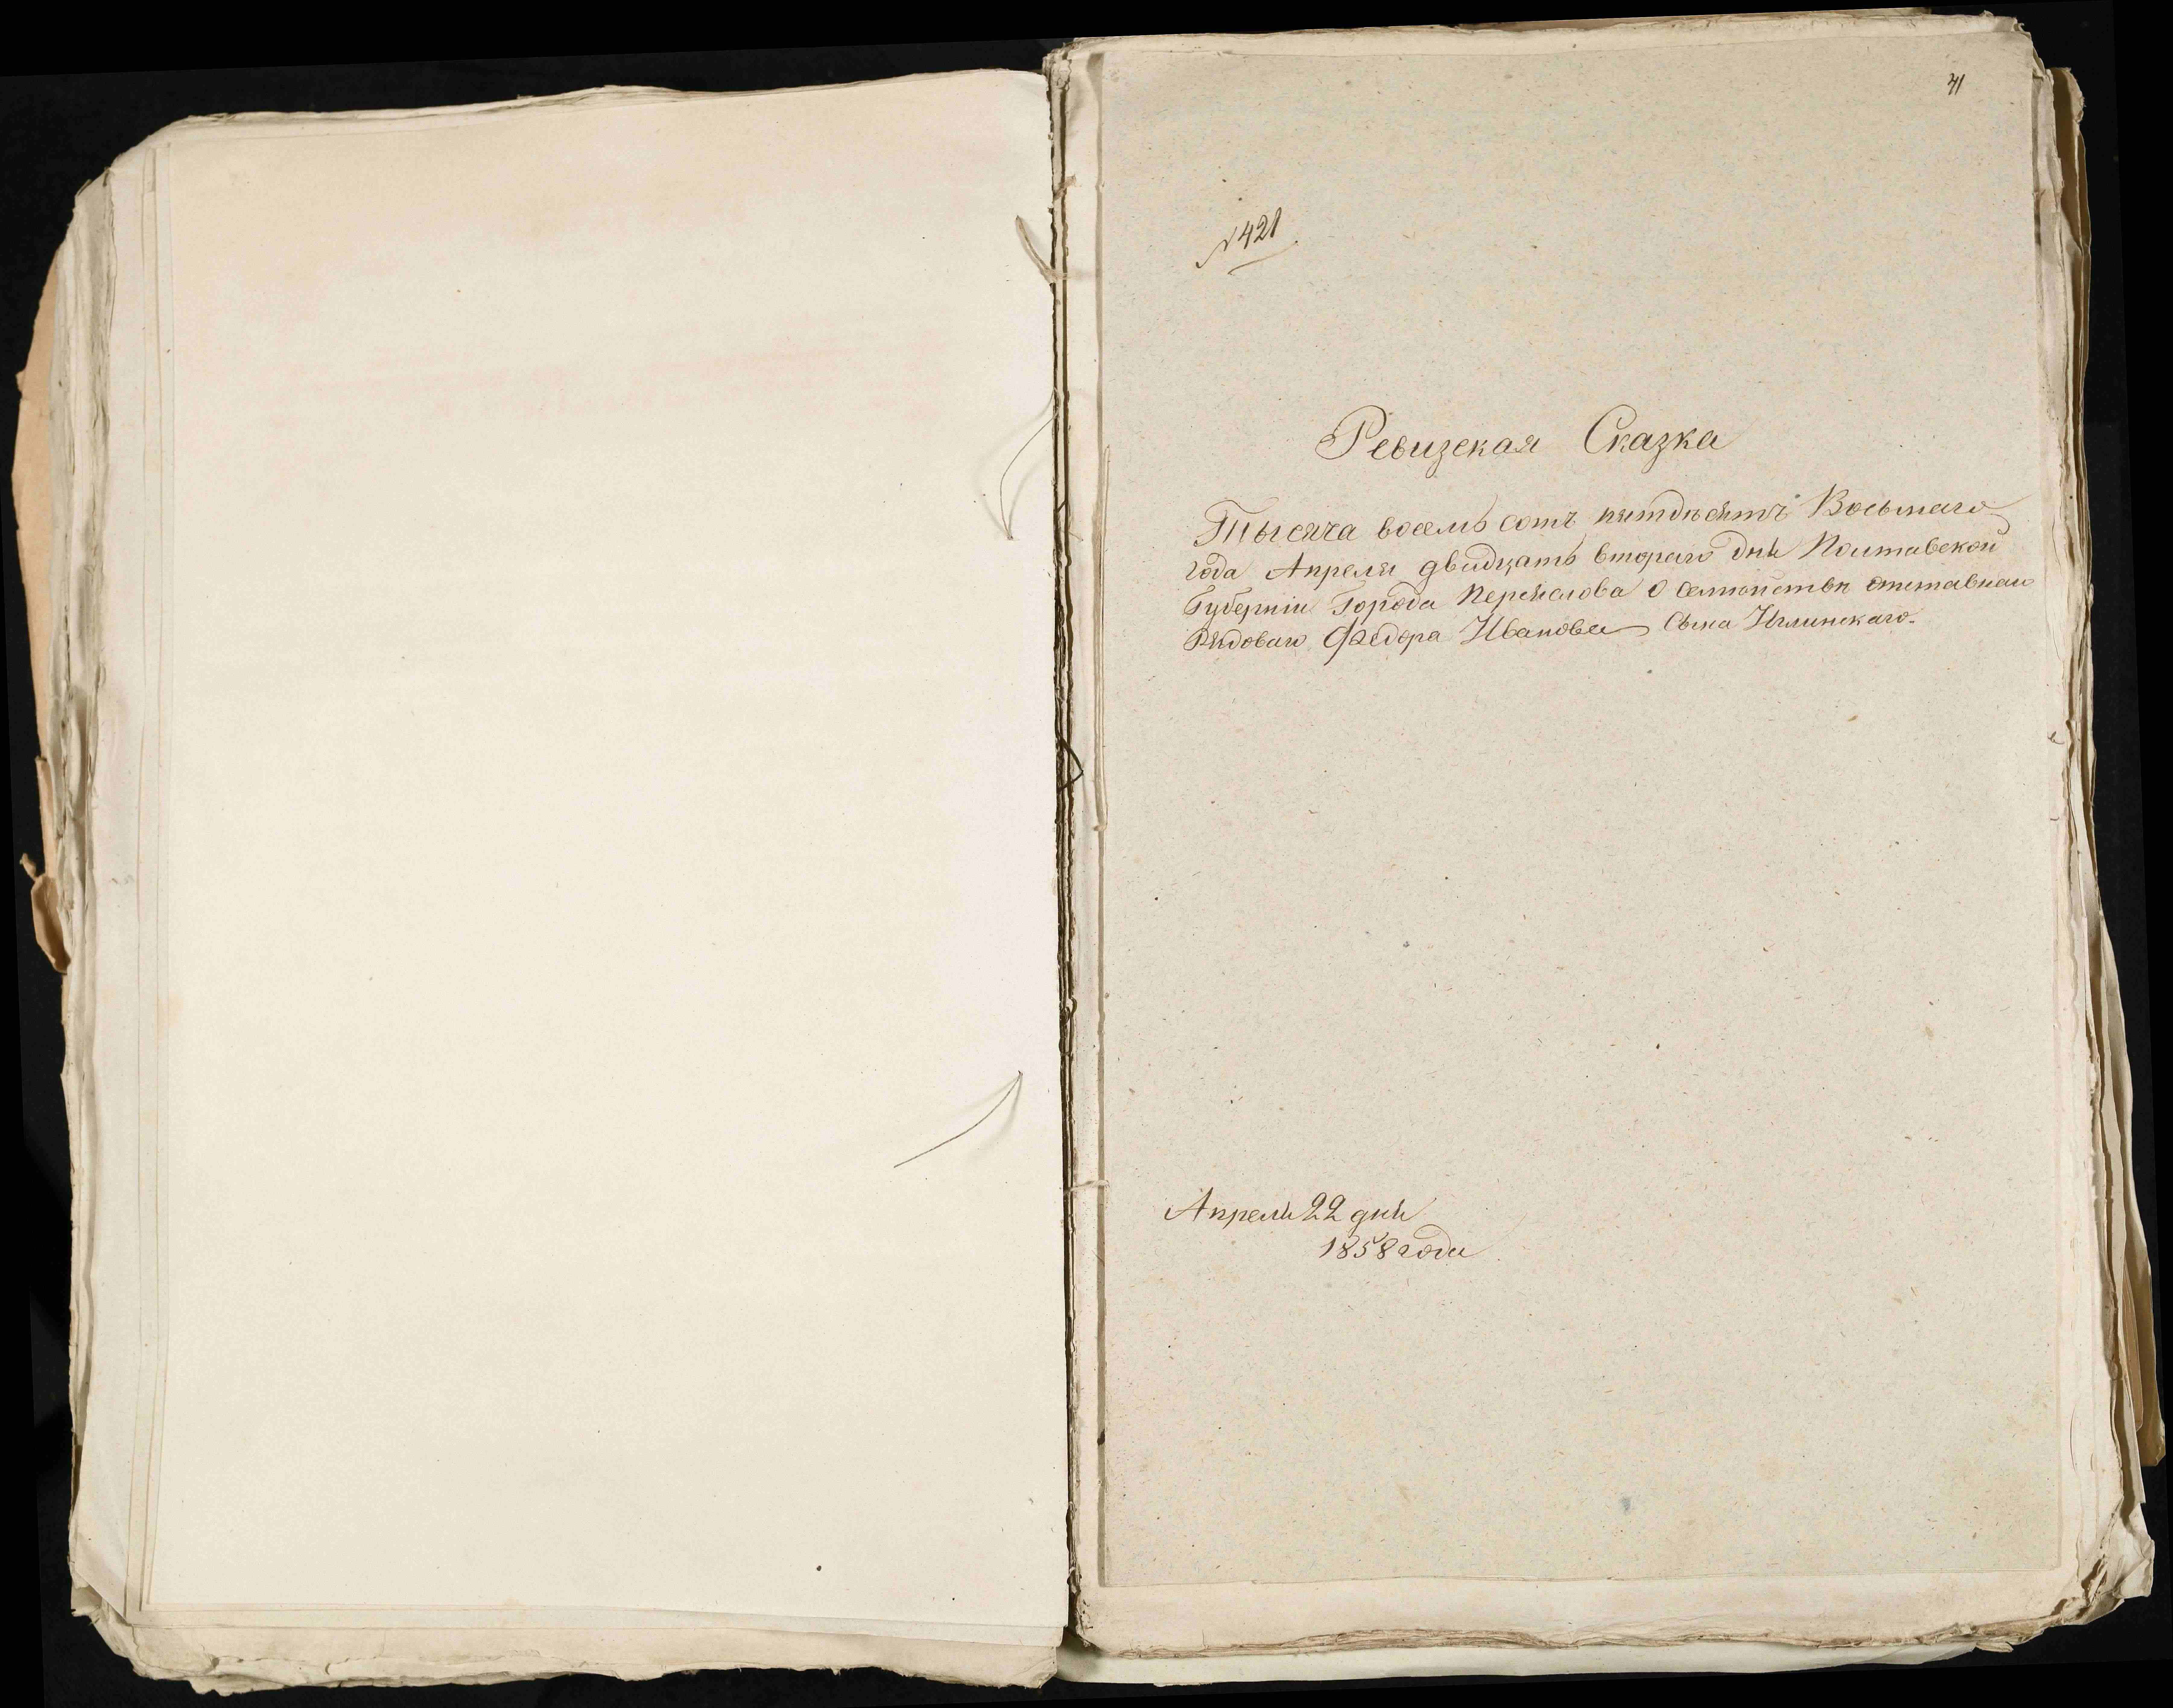 41
№ 421
Ревизская Сказка
Тысяча восемь сотъ пятдѣсятъ Восьмаго
года Апреля двадцать втораго дня Полтавской
Губерніи Города Переяслова О семѣйствѣ отставнаго
Рядоваго Фаедора Иванова Сына
Апреля 22 дня
1858 года